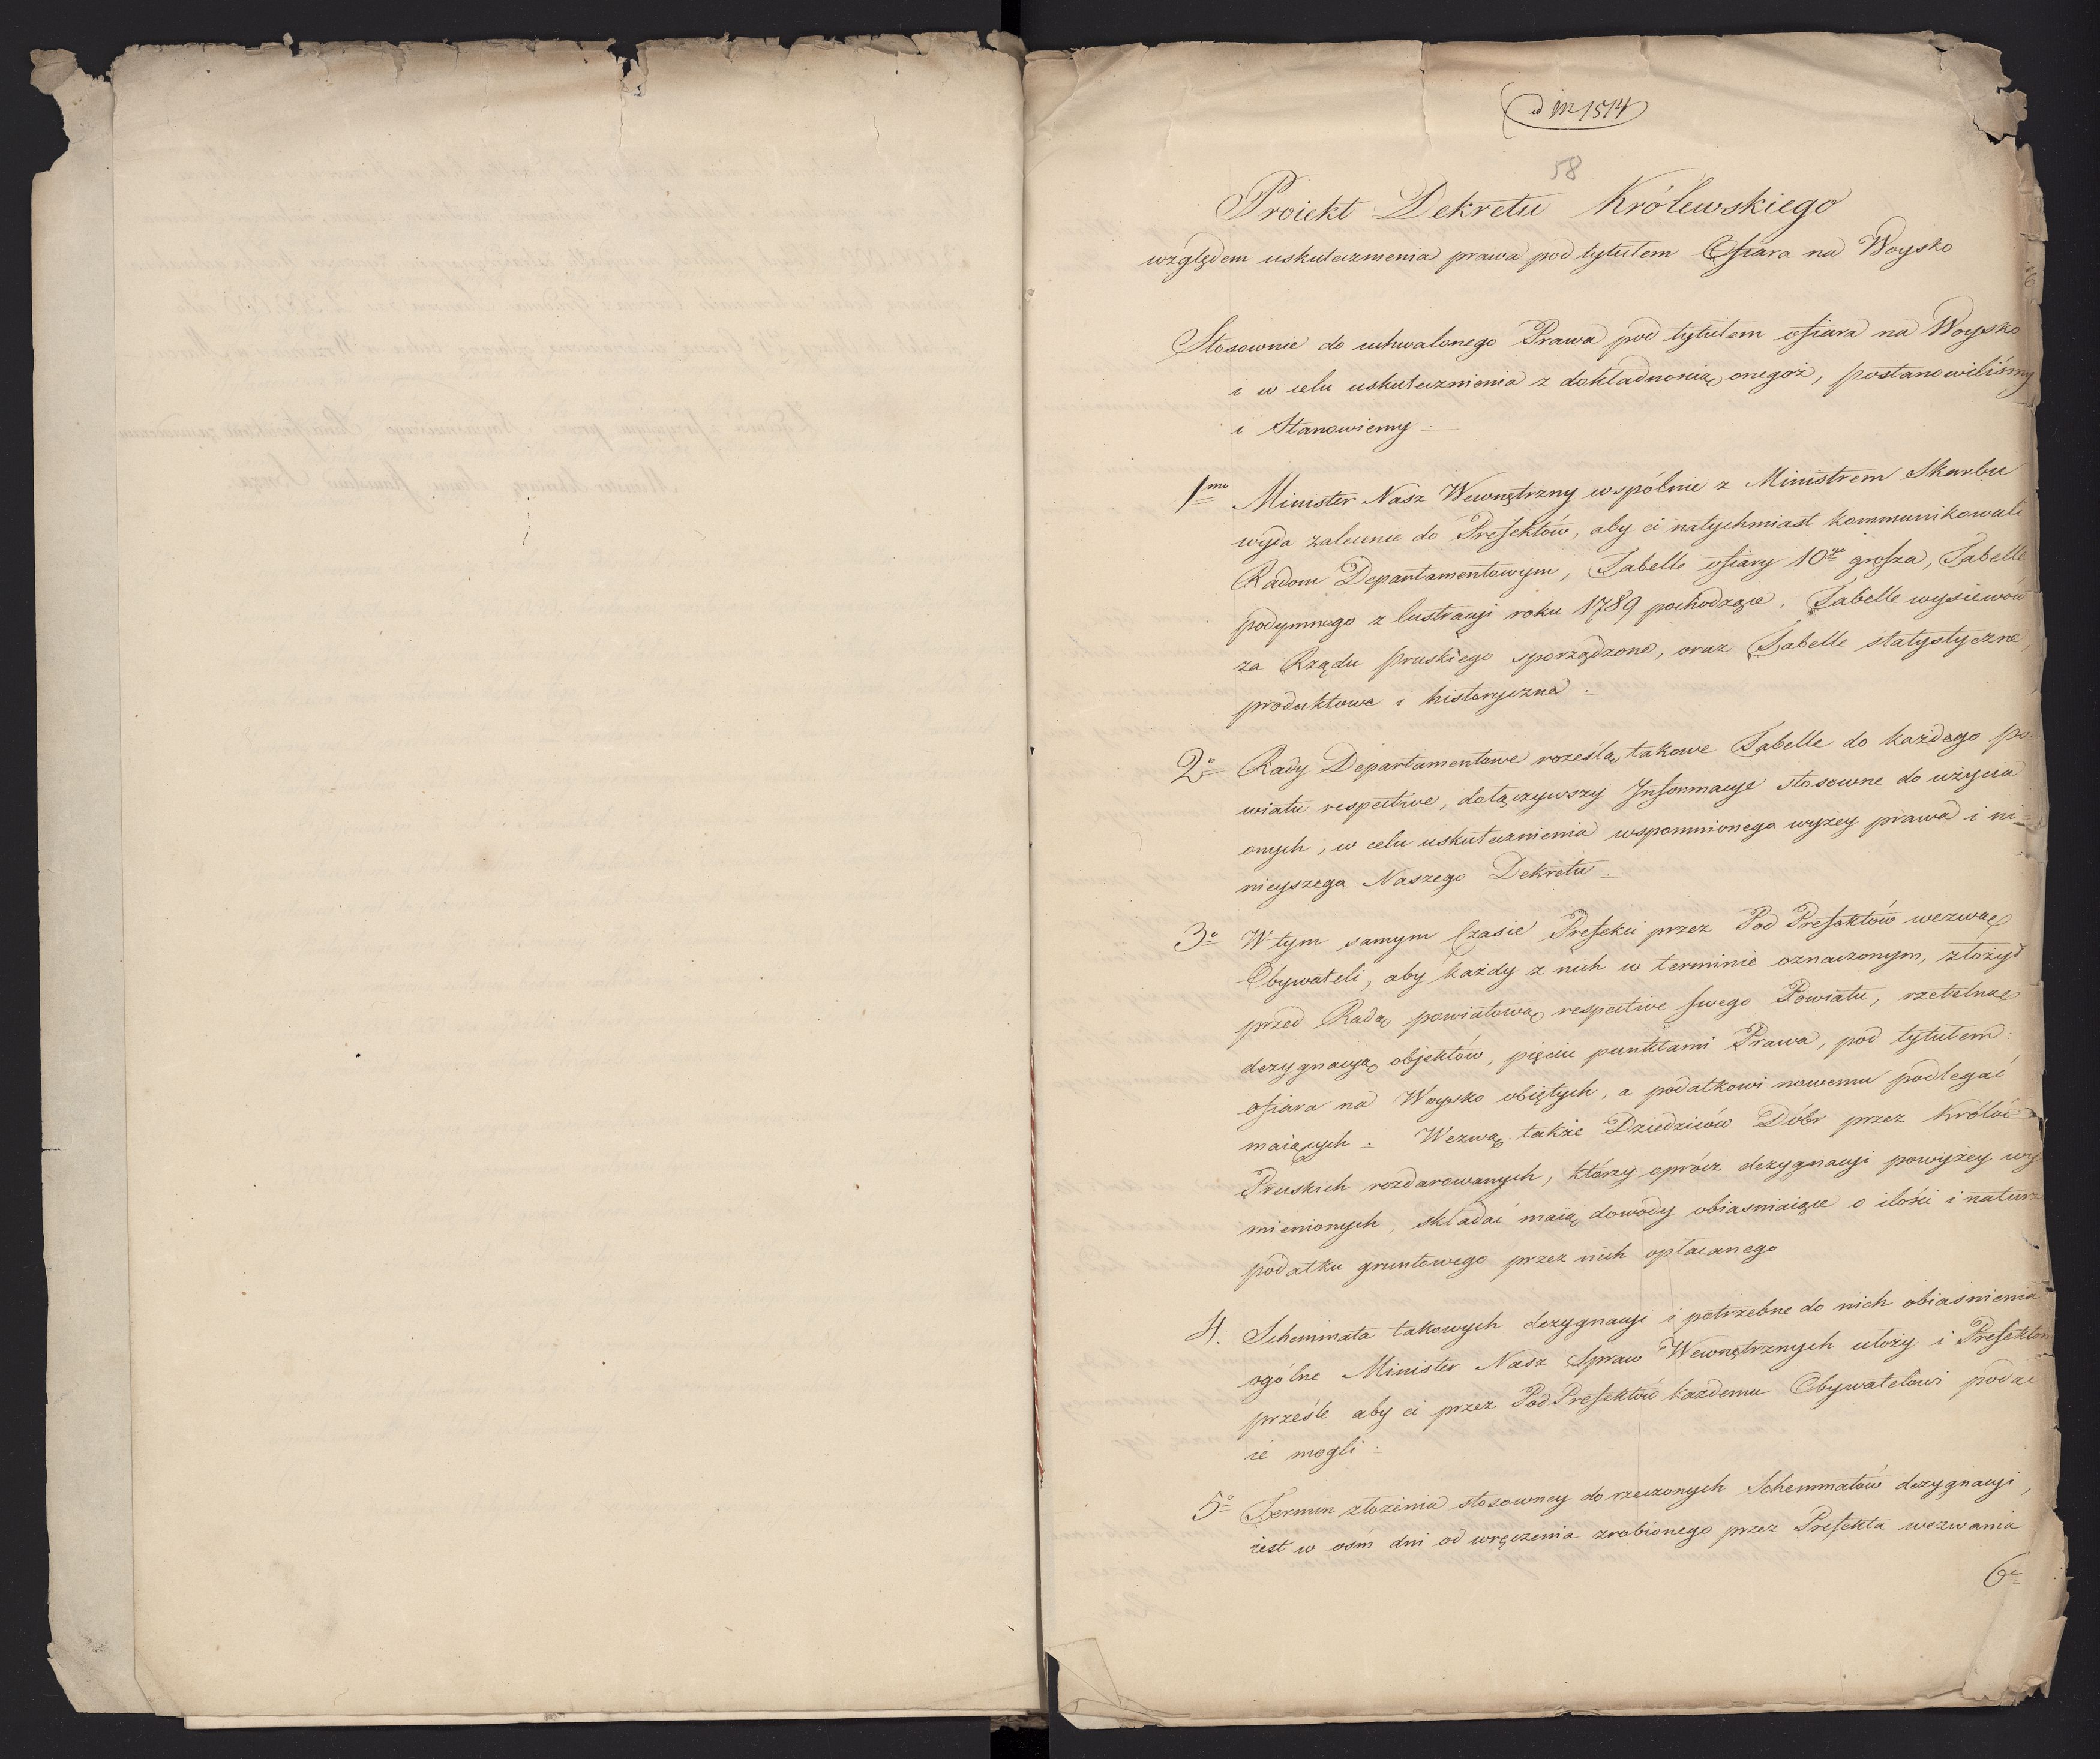 ad Nr 1514
58
Proiekt Dekretu Królewskiego
względem uskutecznienia prawa pod tytułem Ofiara na Woysko
Stosownie do uchwalonego Prawa pod tytułem ofiara na Woysko
i w celu uskutecznienia z dokładnością onegoż, postanowiliśmy
i Stanowiemy
1mo Minister Nasz Wewnętrzny wspólnie z Ministrem Skarbu
wyda zalecenie do Prefektów, aby ci natychmiast kommunikowali
Radom Departamentowym, Tabelle ofiary 10go grosza, Tabelle
podymnego z lustracyi roku 1789 pochodzące, Tabelle wysiewów
za Rządu pruskiego sporządzone, oraz Tabelle statystyczne,
produktowe i historyczne.
2o Rady Departamentowe roześlą takowe Tabelle do każdego po-
wiatu respective, dołączywszy Informacye stosowne do użycia
onych, w celu uskutecznienia wspomnionego wyżey prawa i ni-
nieyszego Naszego Dekretu
3o W tym samym Czasie Prefekci przez Pod Prefektów wezwą
Obywateli, aby każdy z nich w terminie oznaczonym, złożył
przed Radą powiatową respective swego Powiatu, rzetelną
dezygnacyą objektów, pięciu punktami Prawa, pod tytułem:
ofiara na Woysko obiętych, a podatkowi nowemu podlegać
maiących. Wezwą także Dziedziców Dóbr przez Królów
Pruskich rozdarowanych, którzy oprócz dezygnacyi powyżey wy
mienionych, składać maią dowody obiasniaiące o ilości i naturze
podatku gruntowego przez nich opłacanego
4. Schemmata takowych dezygnacyi i potrzebne do nich obiasnienia
ogólne Minister Nasz Spraw Wewnętrznych ułoży i Prefektom
prześle aby ci przez Pod Prefektów każdemu Obywatelowi podac
ié mogli
5o Termin złożenia stosowney do rzeczonych Schemmatów dezygnacyi,
iest w ośm dni od wręczenia zrobionego przez Prefekta wezwania
6o